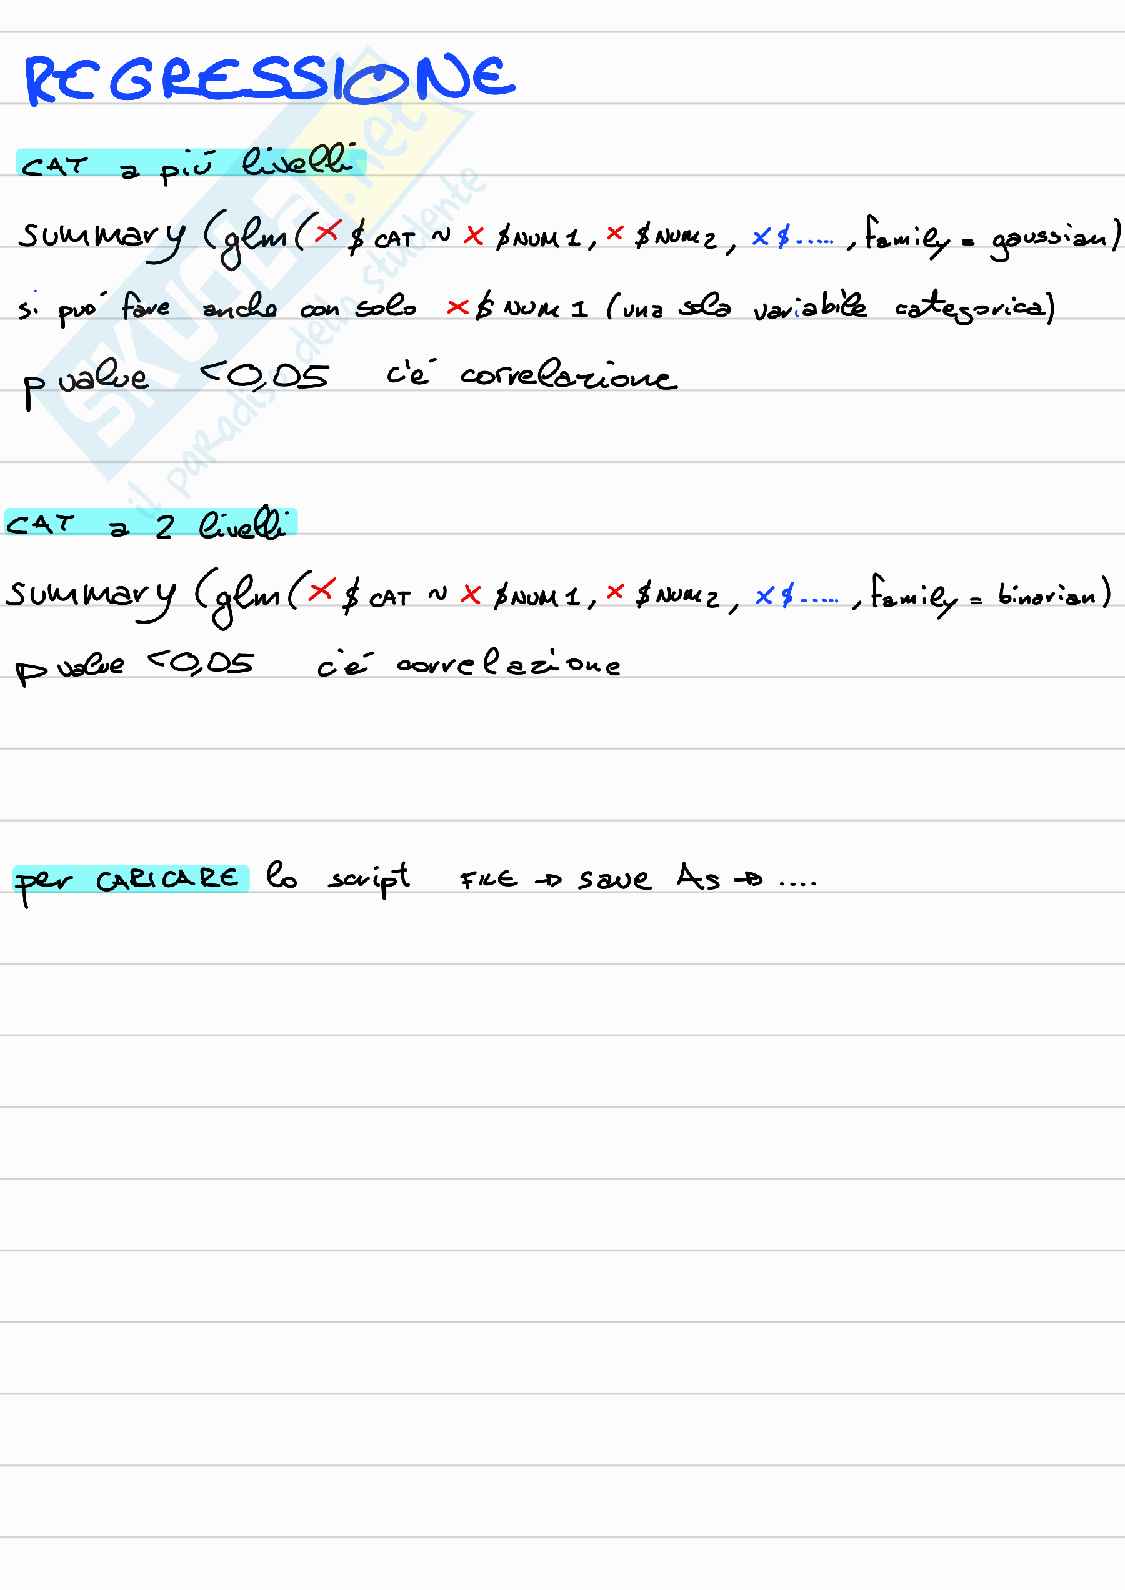 REGRESSIONE
CAT a più livelli
summary (glm(x$CAT ~ x$NUM1, x$NUM2, x$....., family = gaussian)
si può fare anche con solo x$NUM1 (una sola variabile categorica)
p value <0,05 c'è correlazione
CAT a 2 livelli
summary (glm(x$CAT ~ x$NUM1, x$NUM2, x$....., family = binarian)
p value <0,05 c'è correlazione
per CARICARE lo script FILE → save As → ....
SKUOLA.net
il paradiso dello studente